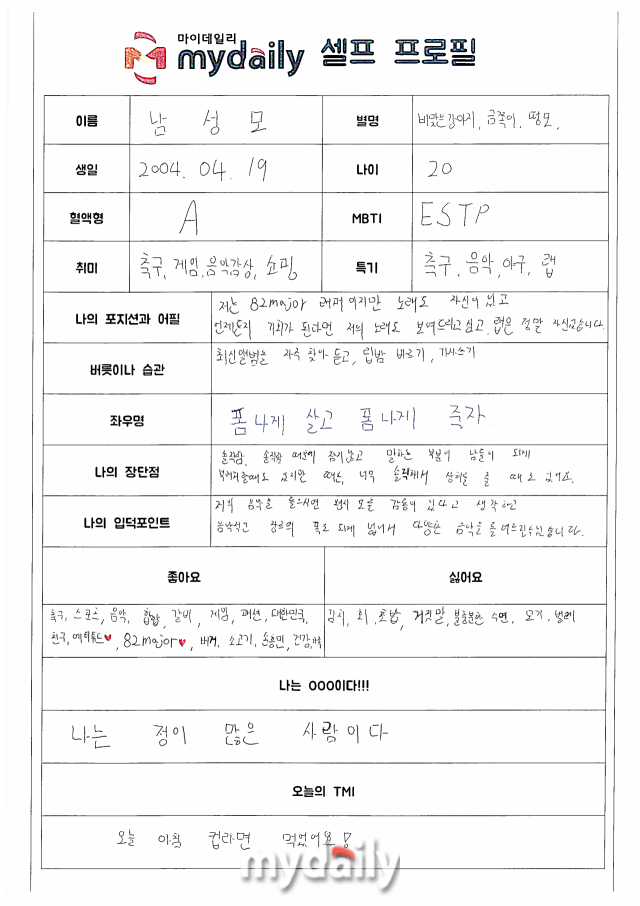 마이데일리
mydaily 셀프 프로필
이름 남 성 모 별명 비맞은강아지, 금쪽이, 떵모,
생일 2004. 04. 19 나이 20
혈액형 A MBTI ESTP
취미 축구, 게임, 음악감상, 쇼핑 특기 축구, 음악, 야구, 랩
나의 포지션과 어필 저는 82major 래퍼이지만 노래도 자신이 있고
언제든지 기회가 된다면 저의 노래도 보여드리고 싶고 랩은 정말 자신있습니다.
버릇이나 습관 최신앨범을 자주 찾아 듣고, 립밤 바르기, 가사쓰기
좌우명 폼나게 살고 폼나게 죽자.
나의 장단점 솔직함. 솔직함 때문에 숨기지않고 말하는 부분이 남들이 되게
있지만 너무 솔직해서 상처를 줄 때도 있어요.
나의 입덕포인트 저의 음악을 들으시면 감동이 있다고 생각하고
음악적인 장르의 폭도 되게 넓어서 다양한 음악을 들려드릴수있습니다.
좋아요 싫어요
축구, 스포츠, 음악, 힙합, 갈비, 게임, 패션, 대한민국, 김치, 회, 초밥, 거짓말, 불충분한 수면, 오기, 벌레
한국, 에티튜드♥, 82major♥, 버거, 소고기, 손흥민, 건강가족
나는 OOO이다!!!
나는 정이 많은 사람이다
오늘의 TMI
오늘 아침 컵라면 먹었어요!
mydaily